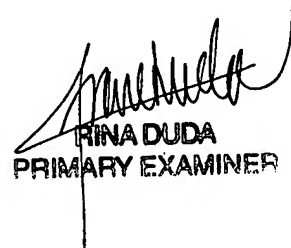 RINA DUDA
PRIMARY EXAMINER